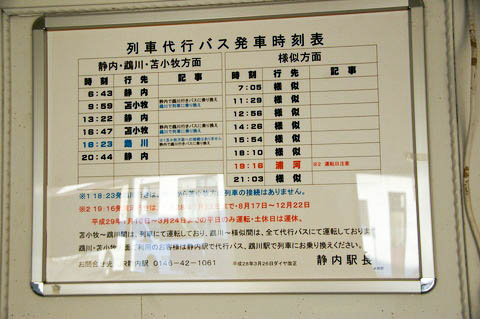 列車代行バス発車時刻表
静内・鵡川・苫小牧方面
時刻 行先 記事
6:43 静内
9:59 苫小牧 静内で鵡川行きバスに乗り換え 鵡川で列車に乗り換え
13:22 静内
16:47 苫小牧 静内で鵡川行きバスに乗り換え 鵡川で列車に乗り換え
18:23 鵡川
20:44 静内
様似方面
時刻 行先 記事
7:05 様似
11:29 様似
12:56 様似
14:26 様似
15:54 様似
18:10 様似
19:16 浦河 ※2 運転日注意
21:03 様似
※1 18:23発 列車の接続はありません。
※2 19:16発 ・8月17日～12月22日
平成29年 ～3月24日までの平日のみ運転・土休日は運休。
苫小牧～鵡川間は、列車にて運転しており、鵡川～様似間は、全て代行バスにて運転しております
鵡川・苫小牧 ご利用のお客様は静内駅で代行バス、鵡川駅で列車にお乗り換えください。
お問合せ先 静内駅 0146-42-1061 平成28年3月26日ダイヤ改正 静内駅長